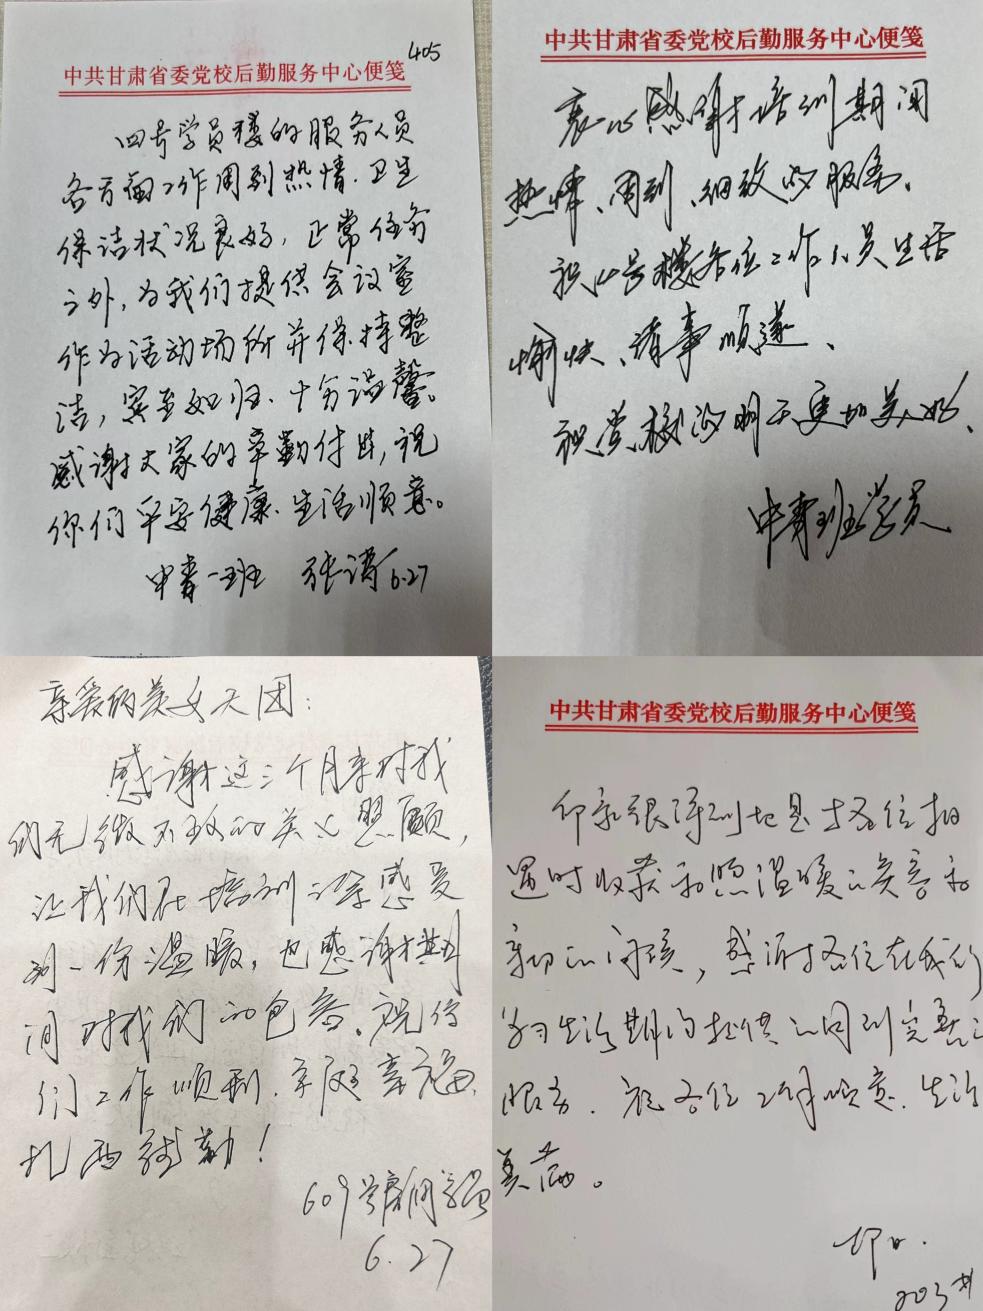 405
中共甘肃省委党校后勤服务中心便笺
四号学员楼的服务人员
各方面工作周到热情、卫生
保洁状况良好，正常任务
之外，为我们提供会议室
作为活动场所并保持整
洁，宾至如归、十分温馨。
感谢大家的辛勤付出，祝
你们平安健康、生活顺意。
中青一班 张涛 6.27
中共甘肃省委党校后勤服务中心便笺
衷心感谢培训期间
热情、周到、细致的服务、
祝四号楼各位工作人员生活
愉快、诸事顺遂、
祝党校的明天更加美好、
中青班学员
亲爱的美女天团：
感谢这三个月来对我
们无微不至的关心照顾，
让我们在培训之余感受
到一份温暖，也感谢期
间对我们的包容、祝你
们工作顺利、家庭幸福、
扎西德勒！
609号房间学员
6.27
中共甘肃省委党校后勤服务中心便笺
印象很深刻的是与各位相
遇时收获和煦温暖的笑容和
亲切的问候，感谢各位在我们
学习生活期间提供的周到完善的
服务、祝各位工作顺意、生活
美满。